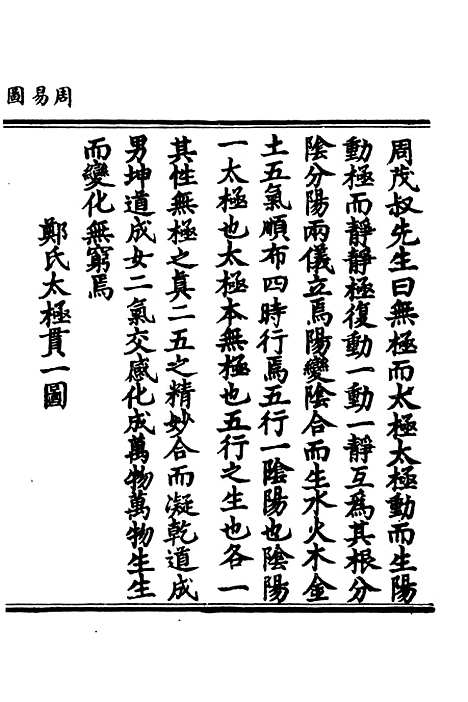 周易圖
周茂叔先生曰無極而太極太極動而生陽
動極而靜靜極復動一動一靜互爲其根分
陰分陽兩儀立焉陽變陰合而生水火木金
土五氣順布四時行焉五行一陰陽也陰陽
一太極也太極本無極也五行之生也各一
其性無極之真二五之精妙合而凝乾道成
男坤道成女二氣交感化成萬物萬物生生
而變化無窮焉
鄭氏太極貫一圖